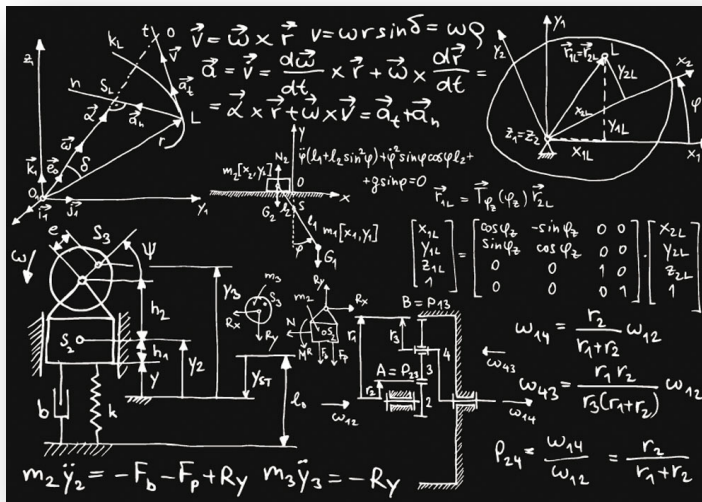 v⃗ = ω⃗ × r⃗ v = ωr sin δ = ωρ
a⃗ = v̇⃗ = dω⃗/dt × r⃗ + ω⃗ × dr⃗/dt =
= α⃗ × r⃗ + ω⃗ × v⃗ = a⃗t + a⃗n
z₁
k_L
t
O
v⃗
n
S_L
a⃗t
α⃗
a⃗n
L
ω⃗
r
δ
k⃗₁
e⃗₀
O₁
i⃗₁
j⃗₁
y₁
y₁
y₂
r⃗1L=r⃗2L
L
x₂
y2L
x2L
φ
z₁=z₂
y1L
x1L
x₁
y
N₂
m₂[x₂,y₂]
0
x
G₂
S
l₁
m₁[x₁,y₁]
φ
G₁
φ̈(l₁+l₂sin²φ)+φ̇²sinφcosφl₂+
+gsinφ=0
r⃗1L = T⃗φz(φz) r⃗2L
[x1L y1L z1L 1] = [cosφz -sinφz 0 0; sinφz cosφz 0 0; 0 0 1 0; 0 0 0 1] · [x2L y2L z2L 1]
e
S₃
Ψ
ω
h₂
y₃
S₂
h₁
y₂
y
yST
l₀
b
k
m₃
S₃
Rx
Ry
Ry
m₂
Rx
N
S₂
MR
Fb
Fp
B = P₁₃
r₁
r₃
4
3
A=P₂₃
r₂
2
ω₁₂
ω₁₄
ω₄₃
ω₁₄ = r₂/(r₁+r₂) ω₁₂
ω₄₃ = r₁r₂/(r₃(r₁+r₂)) ω₁₂
ρ₂₄ = ω₁₄/ω₁₂ = r₂/(r₁+r₂)
m₂ÿ₂ = -Fb-Fp+Ry m₃ÿ₃ = -Ry